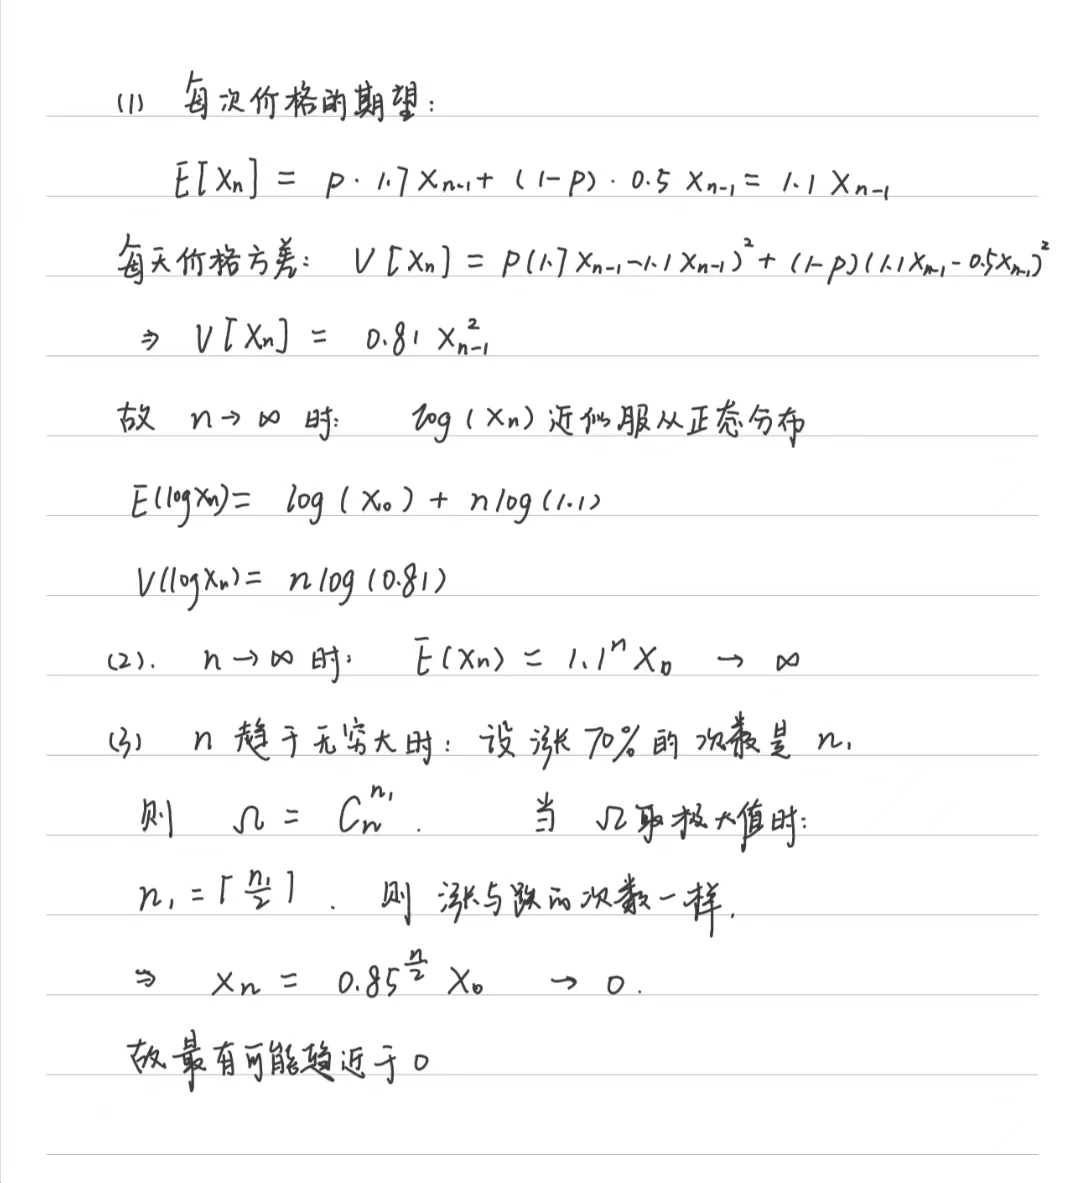 (1) 每次价格的期望:
E[Xn] = p · 1.7 Xn-1 + (1-p) · 0.5 Xn-1 = 1.1 Xn-1
每天价格方差: V[Xn] = p(1.7 Xn-1 - 1.1 Xn-1)² + (1-p)(1.1 Xn-1 - 0.5 Xn-1)²
⇒ V[Xn] = 0.81 X²n-1
故 n→∞ 时: log(Xn) 近似服从正态分布
E(log Xn) = log(X0) + n log(1.1)
V(log Xn) = n log(0.81)
(2). n→∞ 时: E(Xn) = 1.1ⁿ X0 → ∞
(3) n 趋于无穷大时: 设涨 70% 的次数是 n1
则 Ω = C_n^{n1}. 当 Ω 取极大值时:
n1 = ⌈n1/2⌉. 则 涨与跌的次数一样.
⇒ Xn = 0.85^{n/2} X0 → 0.
故最有可能趋近于 0